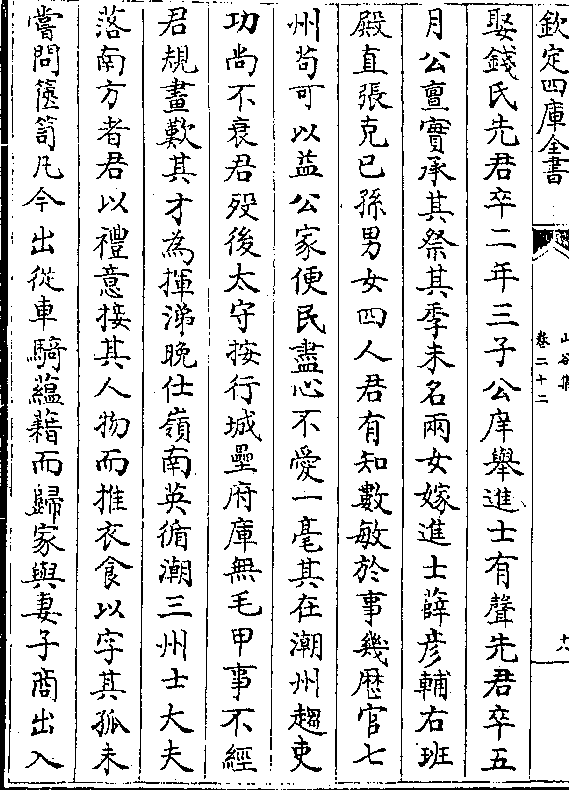 欽定四庫全書
山谷集
卷二十二
十八
娶錢氏先君卒二年三子公庠舉進士有聲先君卒五
月公亶實承其祭其季未名兩女嫁進士薛彦輔右班
殿直張克已孫男女四人君有知數敏於事幾歴官七
州茍可以益公家便民盡心不愛一毫其在潮州趨吏
功尚不衰君殁後太守按行城壘府庫無毛甲事不經
君規畫歎其才為揮涕晚仕嶺南英循潮三州士大夫
落南方者君以禮意接其人物而推衣食以字其孤未
嘗問篋笥凡今出從車騎藴藉而歸家與妻子商出入